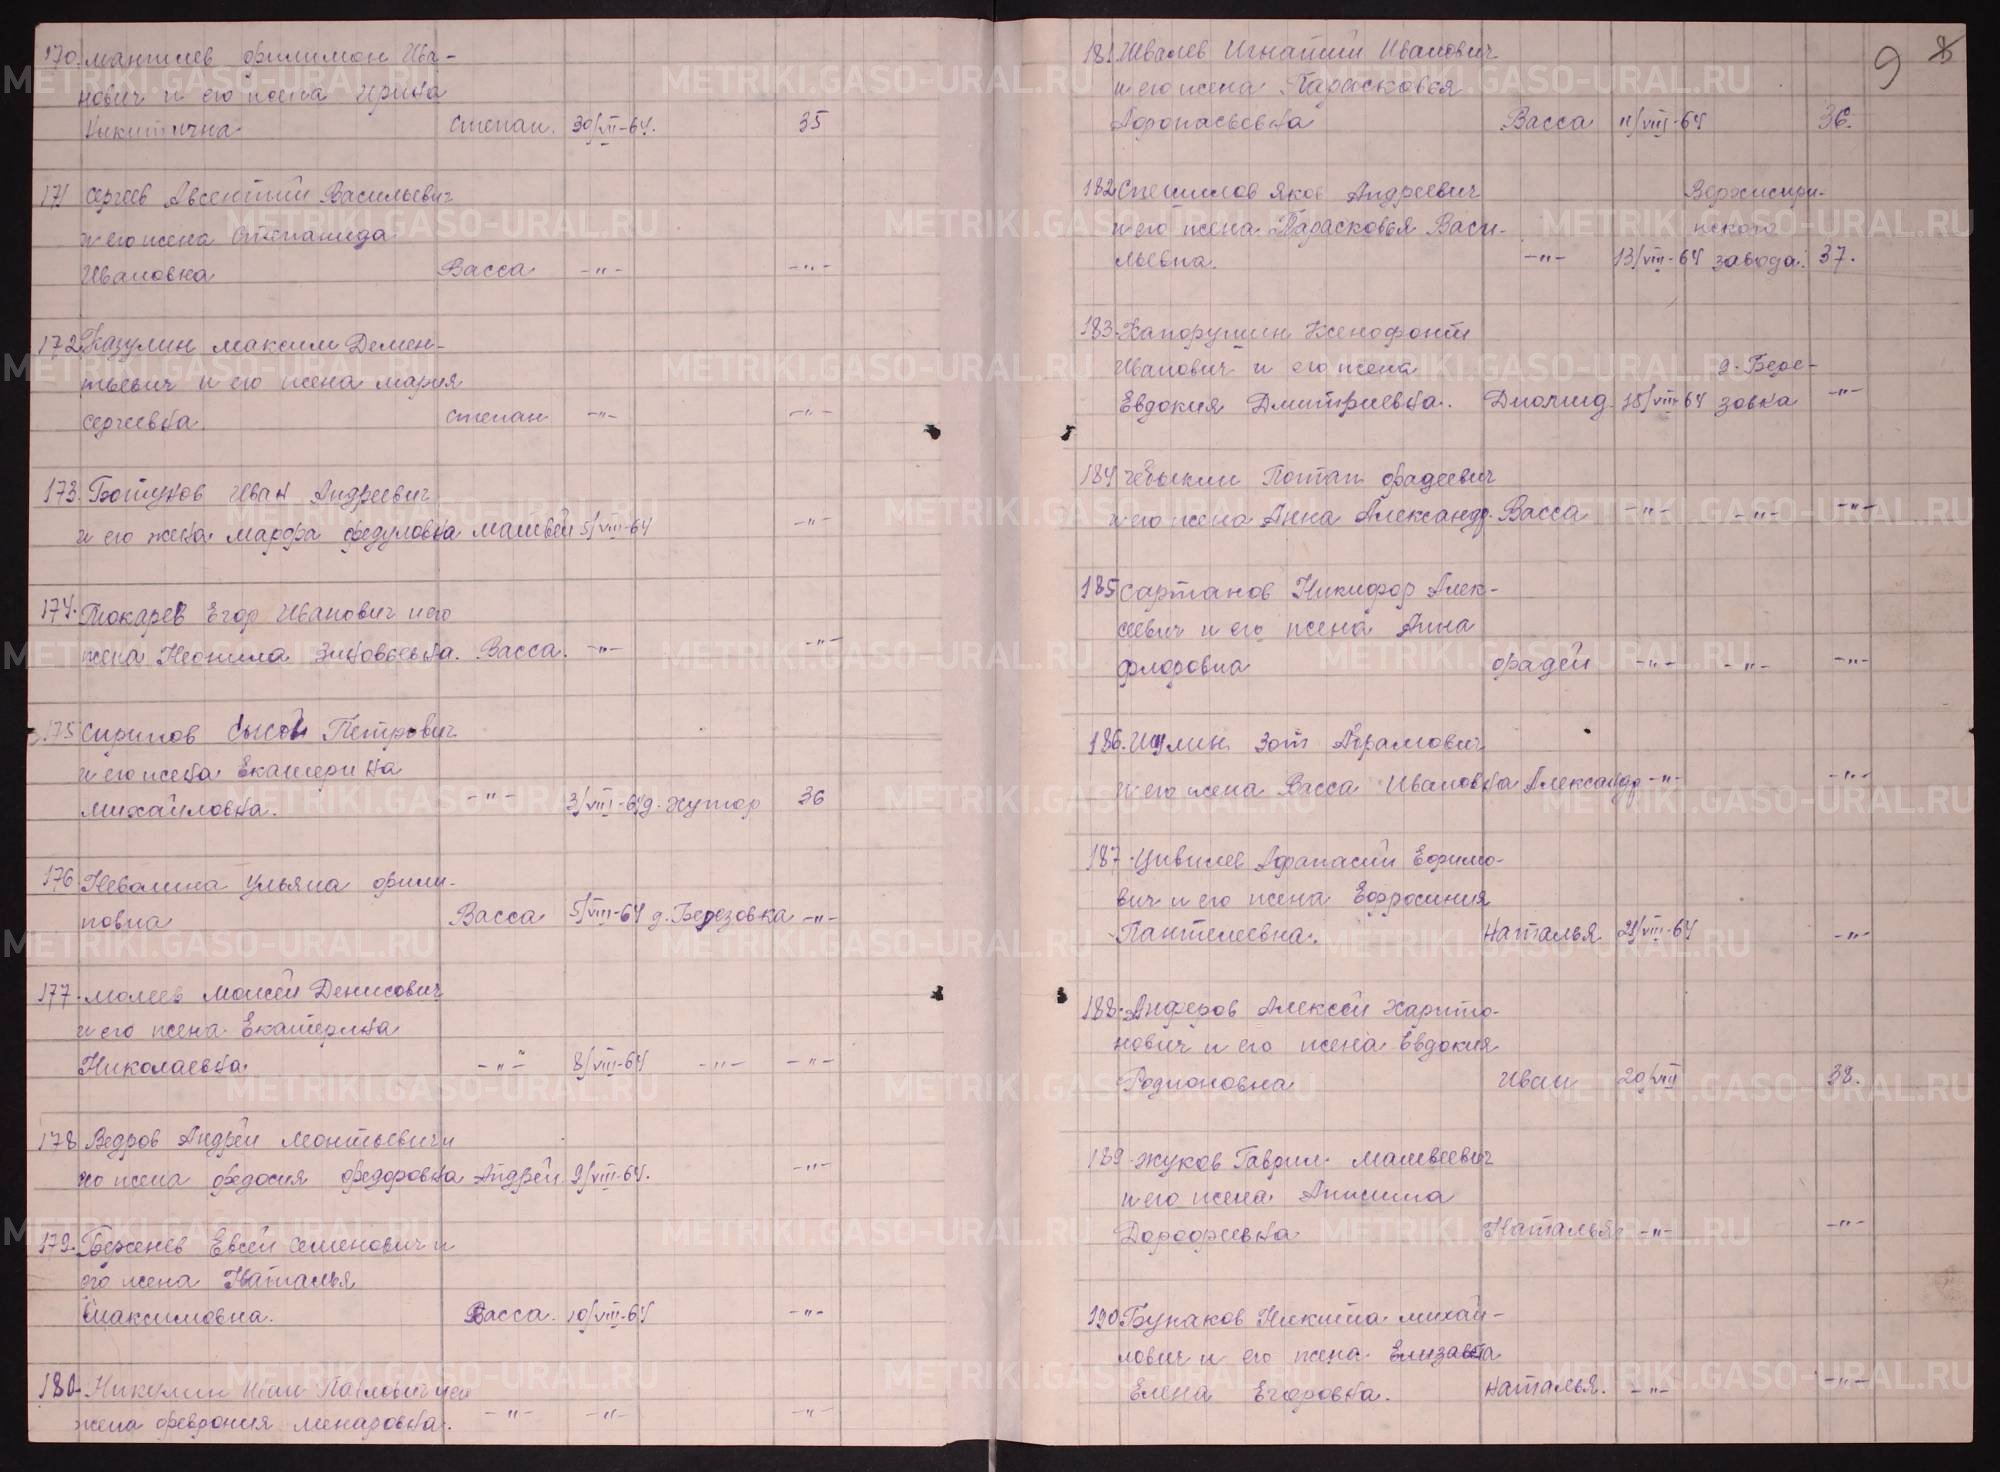 170. Мантиев Филимон Ива-
нович и его жена Ирина
Никитична Степан. 30/VII-64. 35
171 Сергеев Авсентий Васильевич
и его жена Степанида
Ивановна Васса -"- -"-
172. Казулин Максим Демен-
тьевич и его жена Мария
Сергеевна Степан -"- -"-
173. Ботунов Иван Андреевич
и его жена Марфа Федуловна Матвей 5/VIII-64 -"-
174. Токарев Егор Иванович и его
жена Неонила Зиновьевна. Васса. -"- -"-
175 Сирипов Сысой Петрович
и его жена Екатерина
Михайловна. -"- 3/VIII-64 д. Хутор 36
176 Неволина Ульяна Фили-
повна Васса 5/VIII-64 д. Березовка -"-
177. Молеев Моисей Денисович
и его жена Екатерина
Николаевна. -"- 8/VIII-64 -"- -"-
178 Ведров Андрей Леонтьевич и
его жена Федосия Федоровна Андрей 9/VIII-64. -"-
179. Беженев Евсей Семенович и
его жена Наталья
Максимовна. Васса. 10/VIII-64 -"-
180. Никулин Иван Павлович и его
жена Феврония Макаровна. -"- -"- -"-
9 8
181. Швалев Игнатий Иванович
и его жена Парасковья
Афонасьевна Васса 11/VIII-64 36.
182 Спешилов Яков Андреевич Верхисири-
и его жена Парасковья Васи- нского
льевна. -"- 13/VIII-64 завода. 37.
183. Хапорушин Ксенофонт
Иванович и его жена д. Бере-
Евдокия Дмитриевна. Диомид. 15/VIII-64 зовка -"-
184 Чебыкин Потап Фадеевич
и его жена Анна Александр. Васса -"- -"- -"-
185 Сартанов Никифор Алек-
сеевич и его жена Анна
Флоровна Фадей -"- -"- -"-
186. Шулин Зот Абрамович
и его жена Васса Ивановна Александр -"- -"-
187. Цивилев Афанасий Ефимо-
вич и его жена Ефросиния
Пантелеевна. Наталья 21/VIII-64 -"-
188. Анферов Алексей Харито-
нович и его жена Евдокия
Родионовна Иван 20/VIII 38.
189. Жуков Гаврил Матвеевич
и его жена Анисима
Дорофеевна Наталья -"- -"-
190 Бунаков Никита Михай-
лович и его жена Елизавета
Елена Егоровна. Наталья. -"- -"-